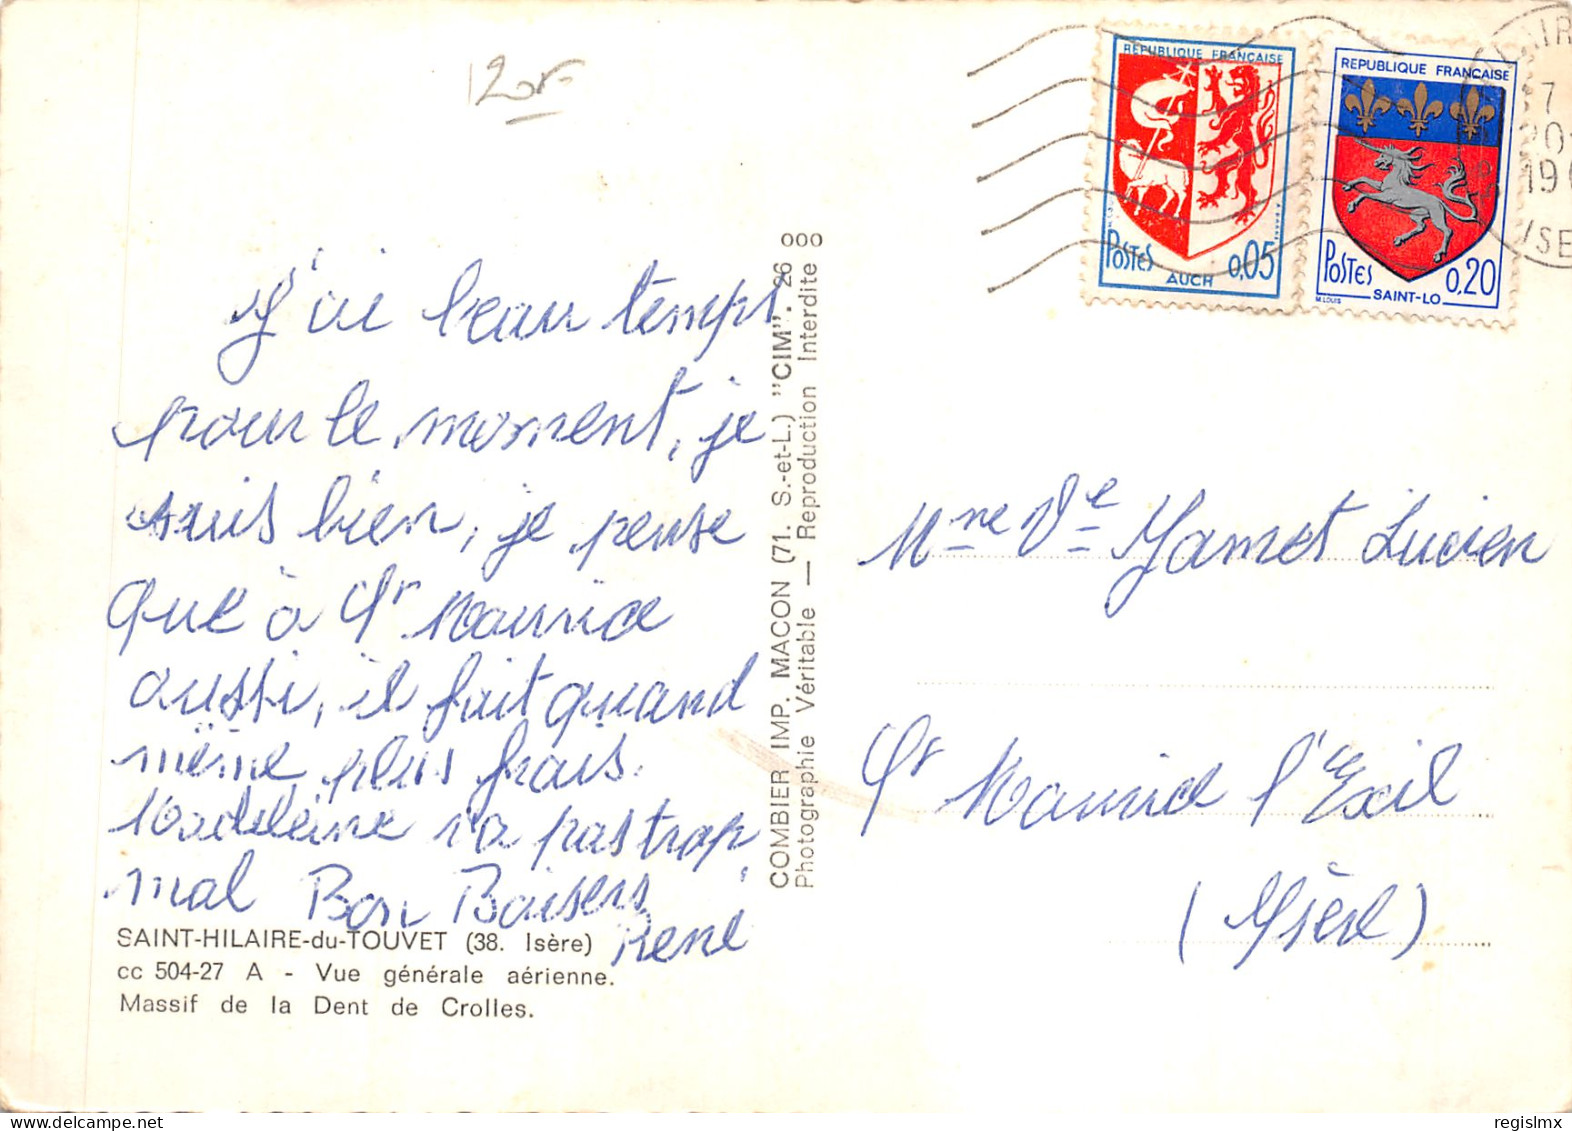 120F
J'ai beau temps
pour le moment, je
suis bien, je pense
que à St Maurice
aussi, il fait quand
même plus frais.
Madeleine n'a pas trop
mal Bon Baisers
René
SAINT-HILAIRE-du-TOUVET (38. Isère)
cc 504-27 A - Vue générale aérienne.
Massif de la Dent de Crolles.
COMBIER IMP. MACON (71. S.-et-L.) "CIM". 26 000
Photographie Véritable — Reproduction Interdite
REPUBLIQUE FRANÇAISE
POSTES 0,05
AUCH
REPUBLIQUE FRANÇAISE
POSTES 0,20
SAINT-LO
M. LOUIS
Mme Vve Jamet Lucien
St Maurice l'Exil
(Isère)
regislmx